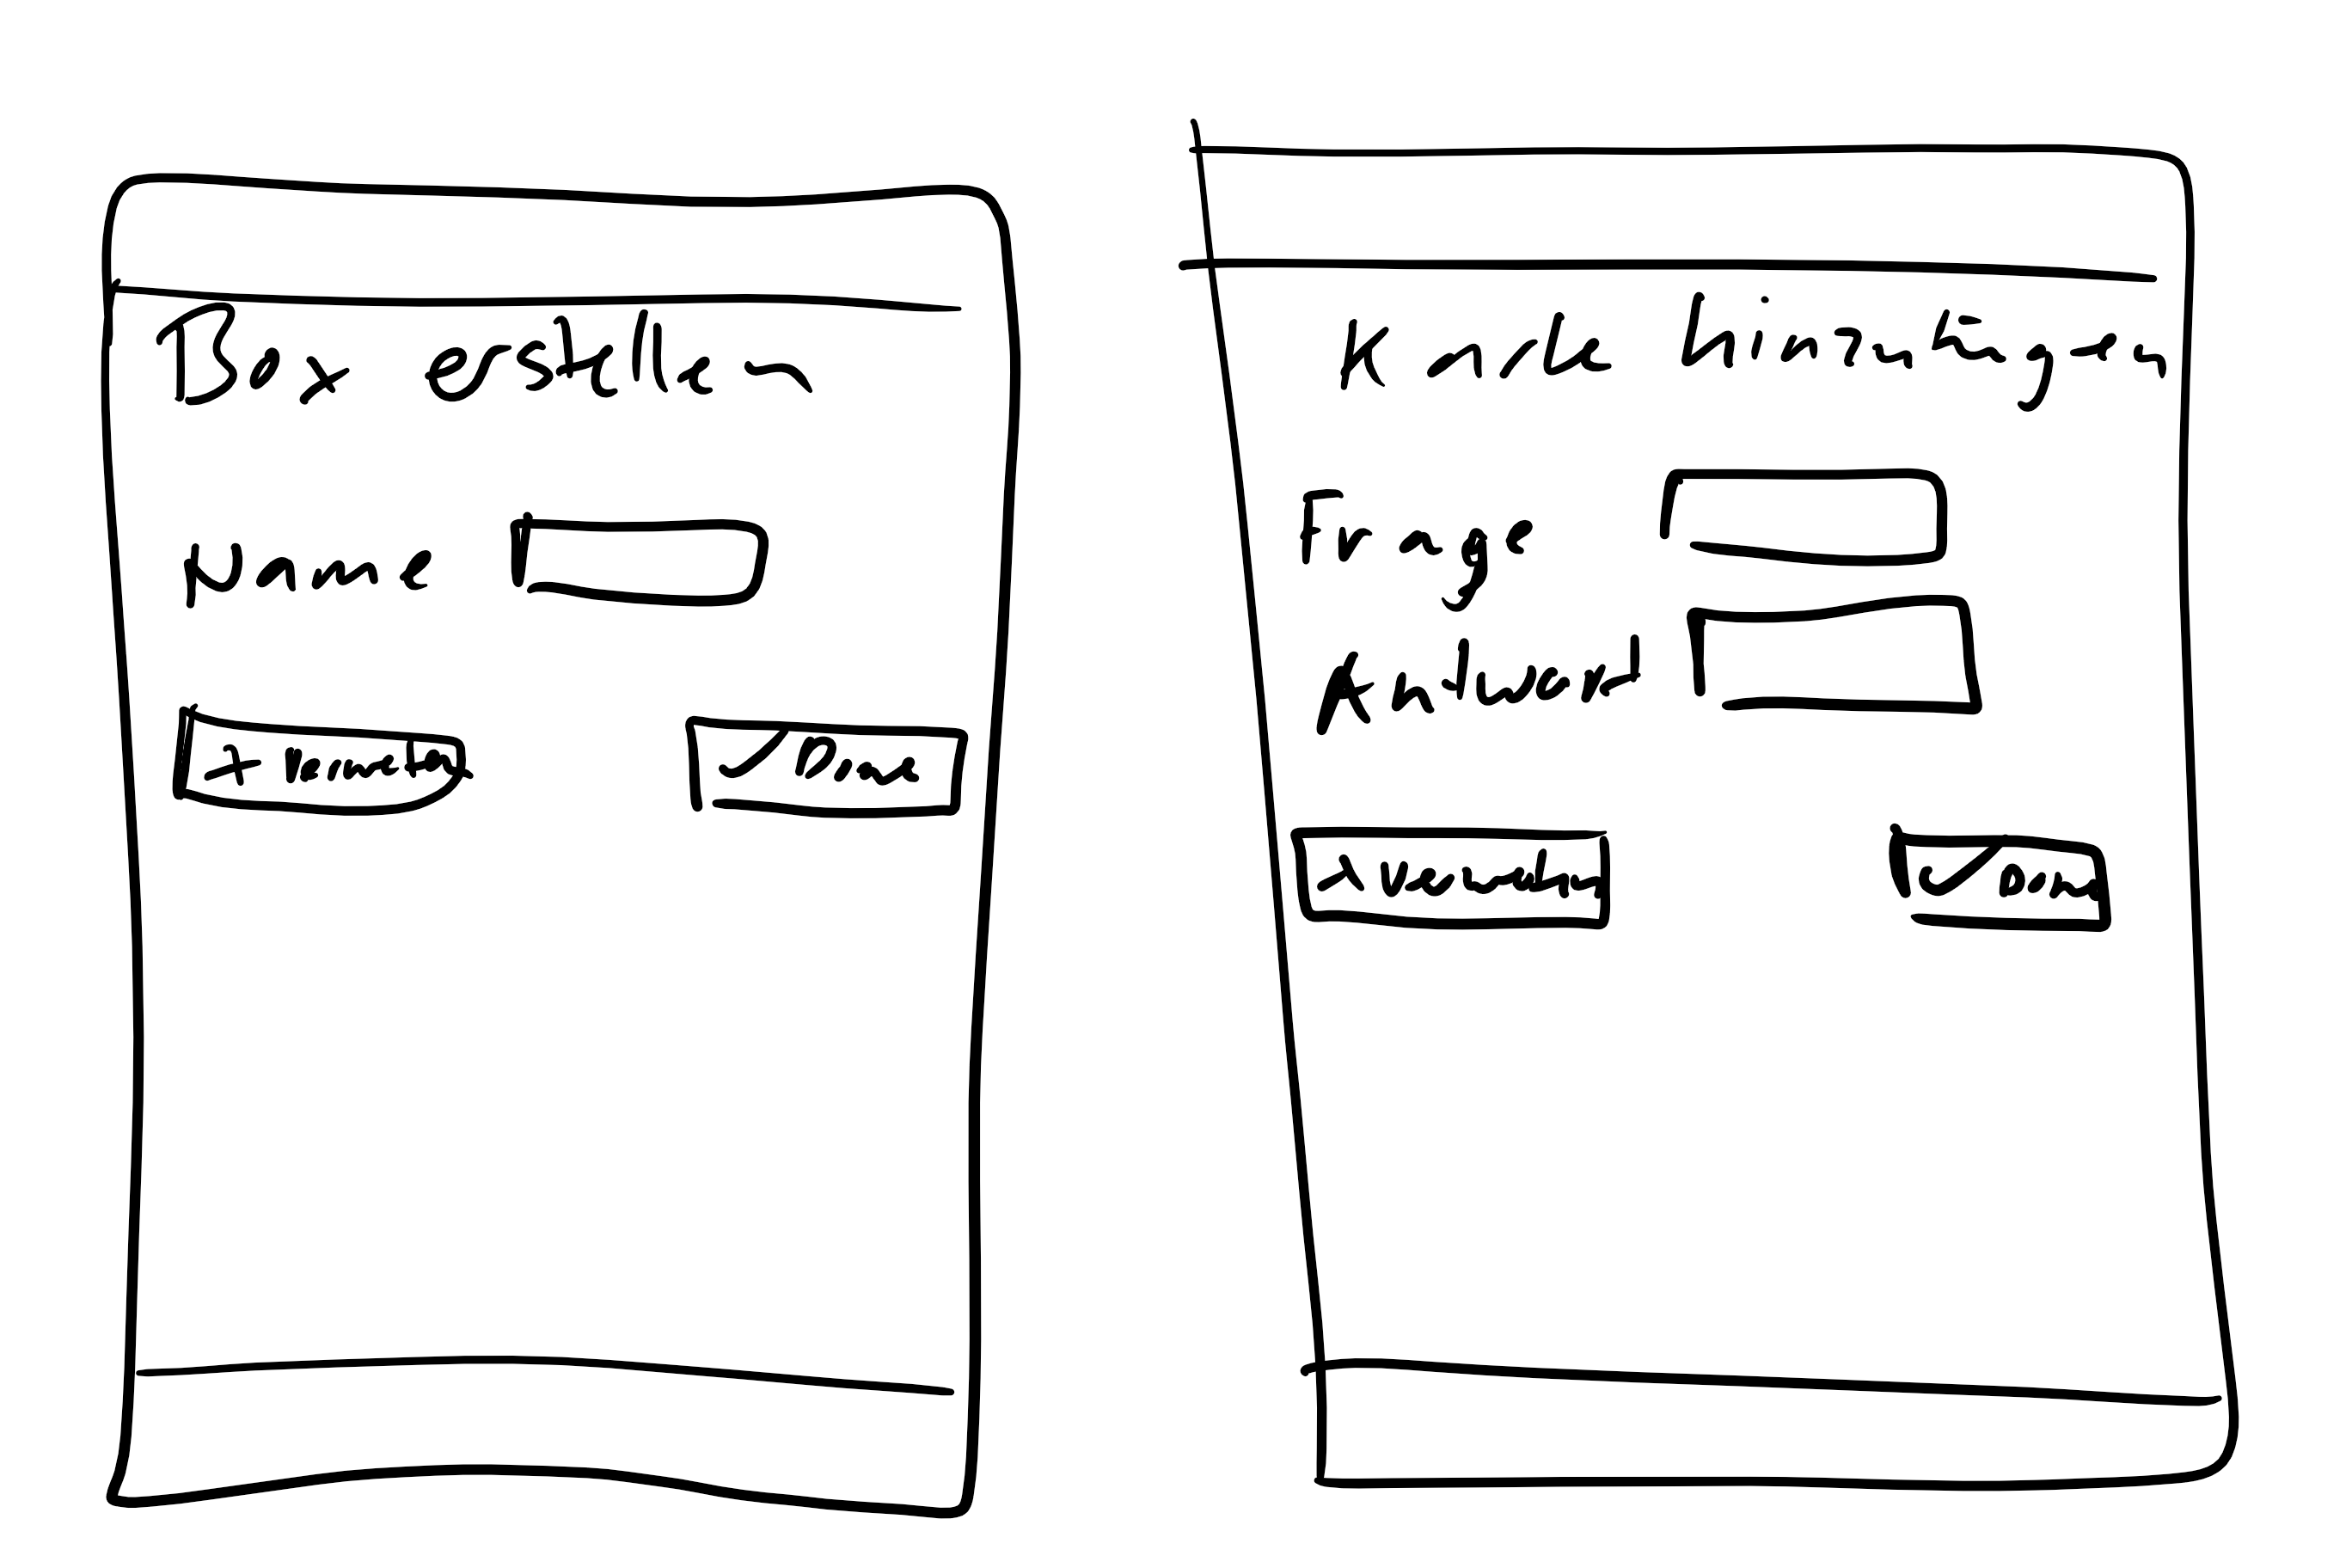 Box erstellen
Name
+ neue Karte
✓ Done
Karte hinzufügen
Frage
Antwort
x Verwerfen
✓ Done